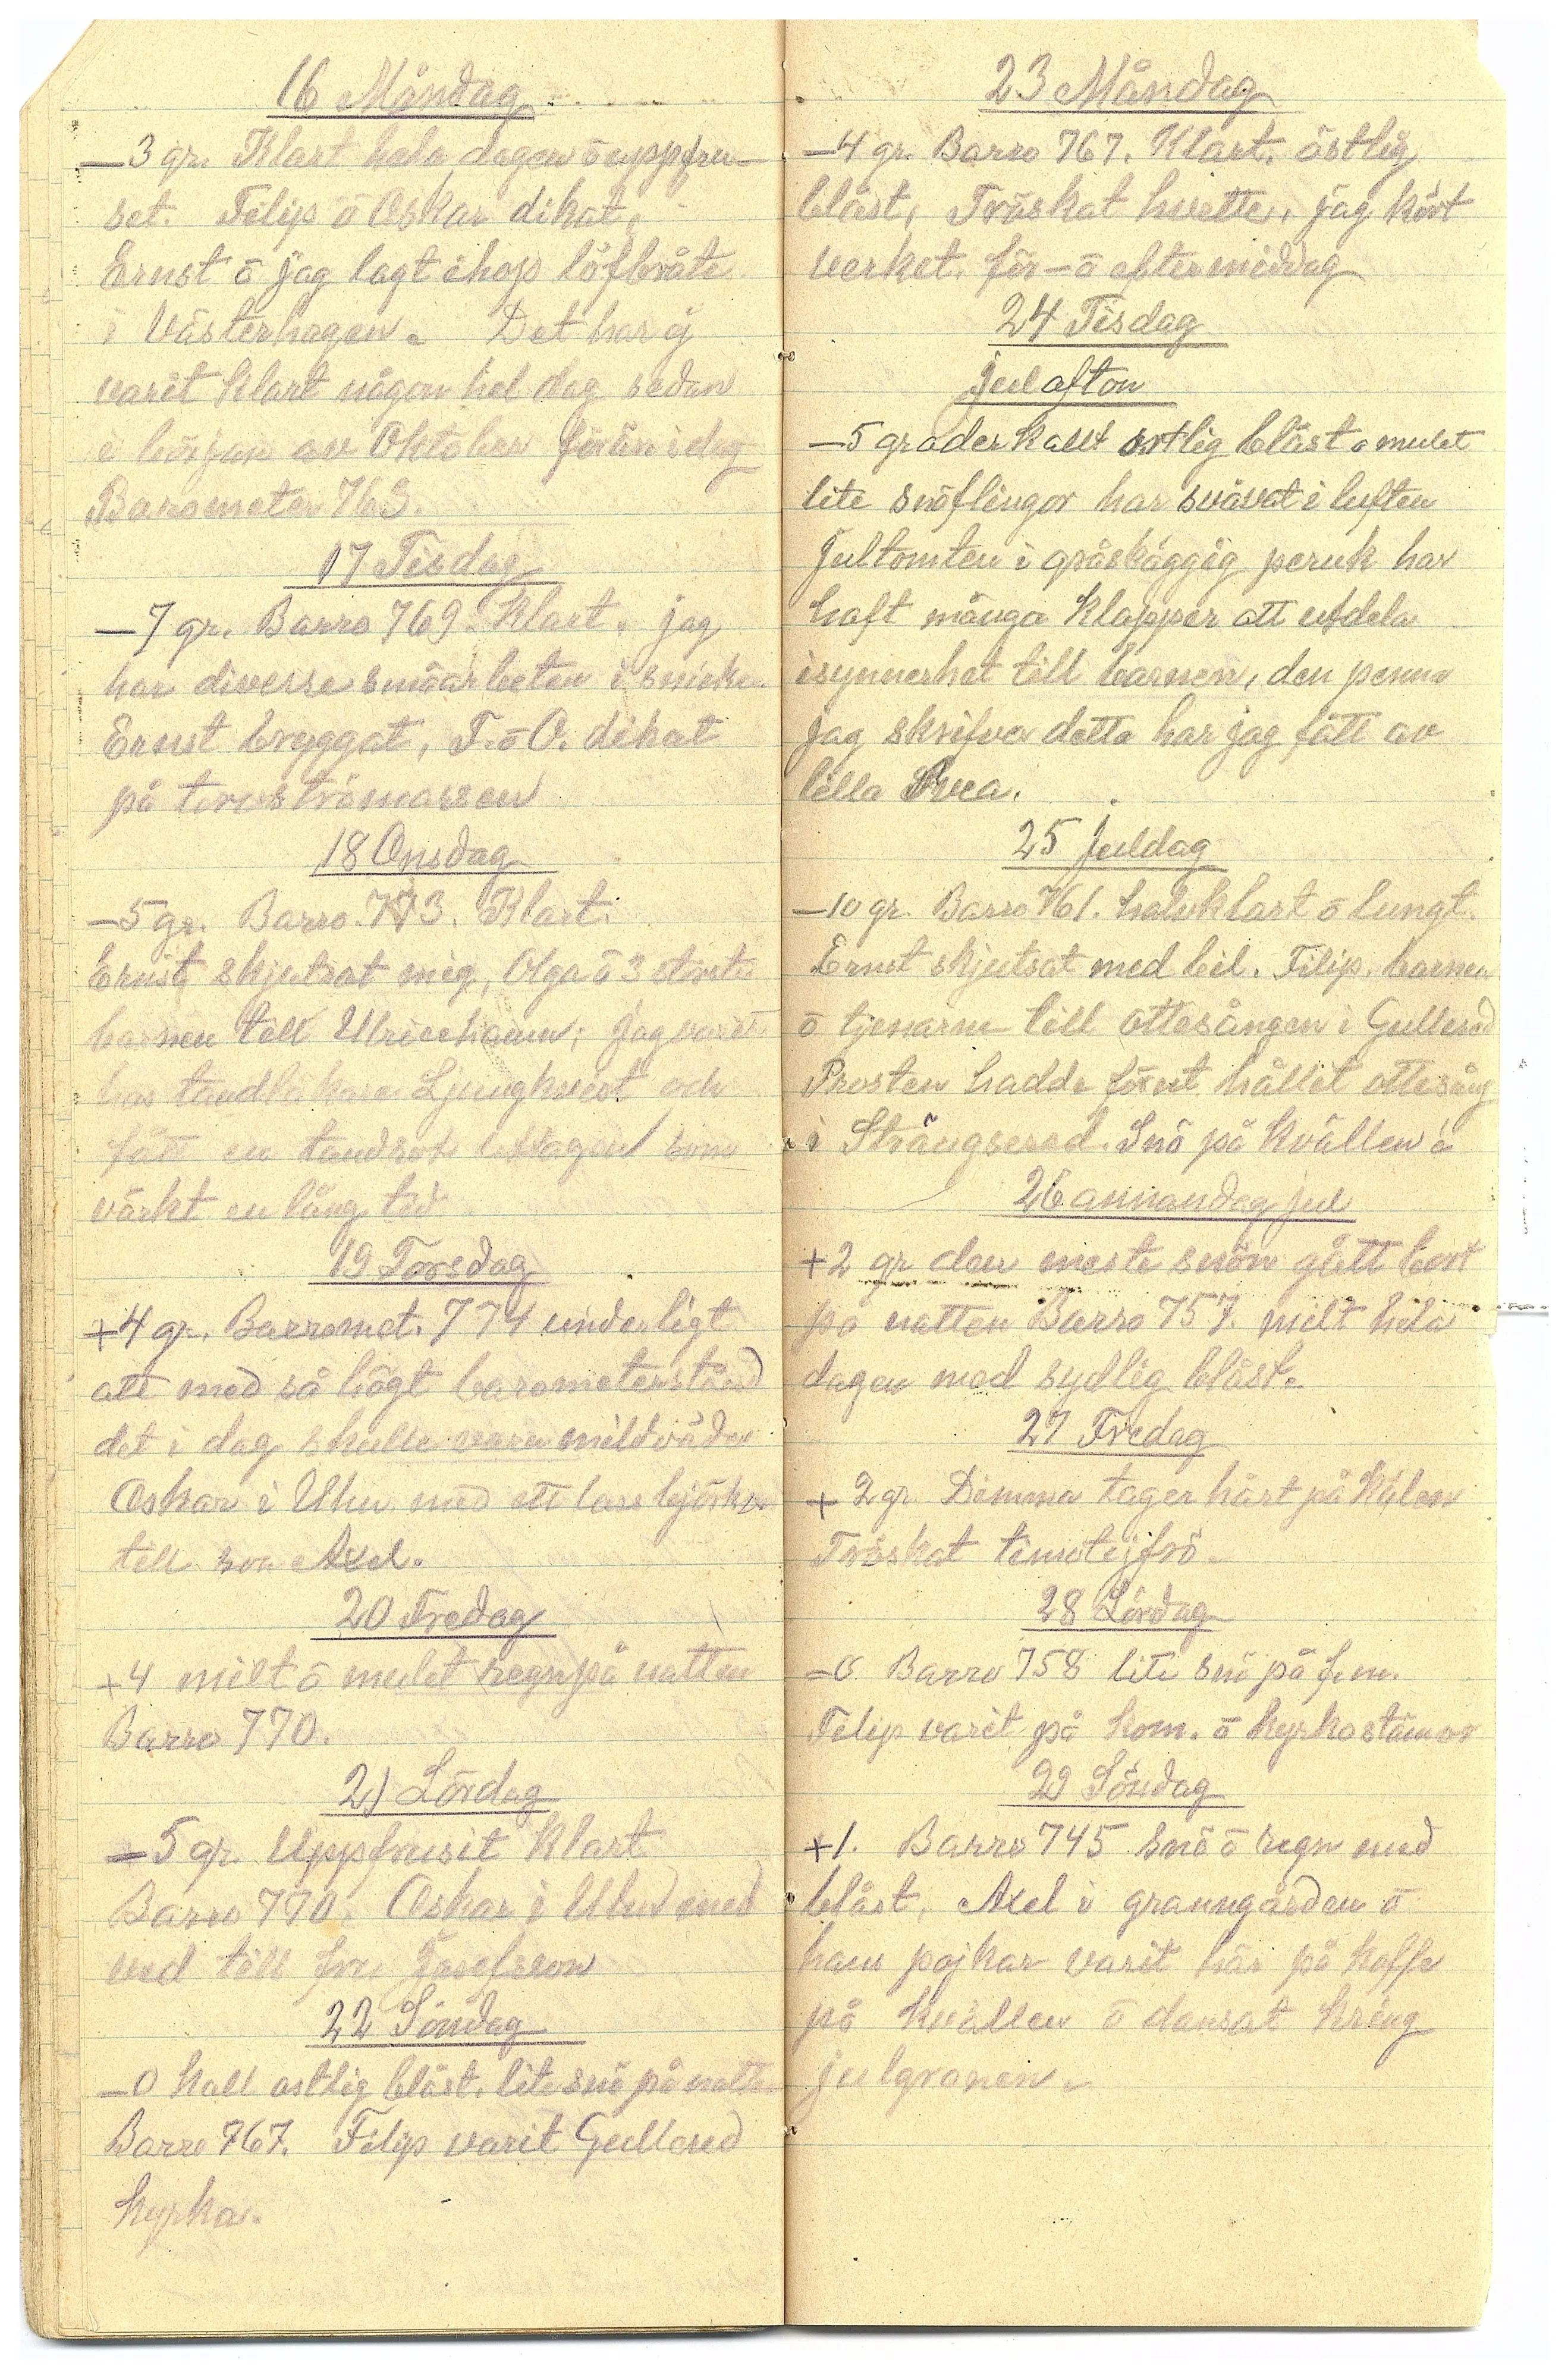 16 Måndag
—3 gr. Klart hela dagen ō uppfru-
set. Filip ō Oskar dikat.
Ernst ō jag lagt ihop löfbråte
i Västerhagen. Det har ej
varit klart någon hel dag sedan
i början av Oktober förän i dag
Barometer 763.
17 Tisdag
—7 gr. Barro 769. Klart. jag
har diverse småarbeten i snicke.
Ernst bryggat, F. ō O. dikat
på
18 Onsdag
—5 gr. Barro. 773. Klart.
Ernst skjutsat mig, Olga ō 3 största
barnen till Ulriceham; jag varit
hos tandläkare Ljungkvist och
fått en tandrot uttagen som
värkt en lång tid
19 Torsdag
+4 gr. Barromet. 774 underligt
att med så högt barometerstånd
det i dag skulle vara mildväder
Oskar i Uhn med ett lass björkv.
till son Axel.
20 Fredag
+4 milt ō mulet regn på natten
Barro 770.
21 Lördag
—5 gr. Uppfrusit Klart
Barro 770. Oskar i Uhn med
ved till fru Josefsson
22 Söndag
—0 kall ostlig blåst. lite snö på natte
Barro 767. Filip varit Gullered
kyrka.
23 Måndag
—4 gr. Barro 767. Klart. östlig
blåst, Tröskat hvette, jag kört
verket. för- ō eftermiddag
24 Tisdag
Julafton
—5 grader kallt ostlig blåst o mulet
lite snöflingor har svävat i luften
Jultomten i gråskäggig peruk har
haft många klapper att utdela
isynnerhet till barnen, den penna
jag skrifver detta har jag fått av
lilla Svea.
25 Juldag
—10 gr. Barro 761. halvklart ō lungt.
Ernst skjutsat med bil. Filip. barnen
ō tjenarne till ottesången i Gullered
Prosten hadde förut hållit ottesång
i Strängsered. Snö på kvällen
26 annandag jul
+2 gr den meste snön gått bort
på natten Barro 757. milt hela
dagen med sydlig blåst.
27 Fredag
+2 gr. Dimma tager hårt på kälen
Tröskat timotejfrö.
28 Lördag
—0 Barro 758 lite snö på f.m.
Filip varit på kom. ō kyrkostämor
29 Söndag
+1. Barro 745 snö ō regn med
blåst, Axel i granngården ō
hans pojkar varit här på kaffe
på kvällen ō dansat kring
julgranen.